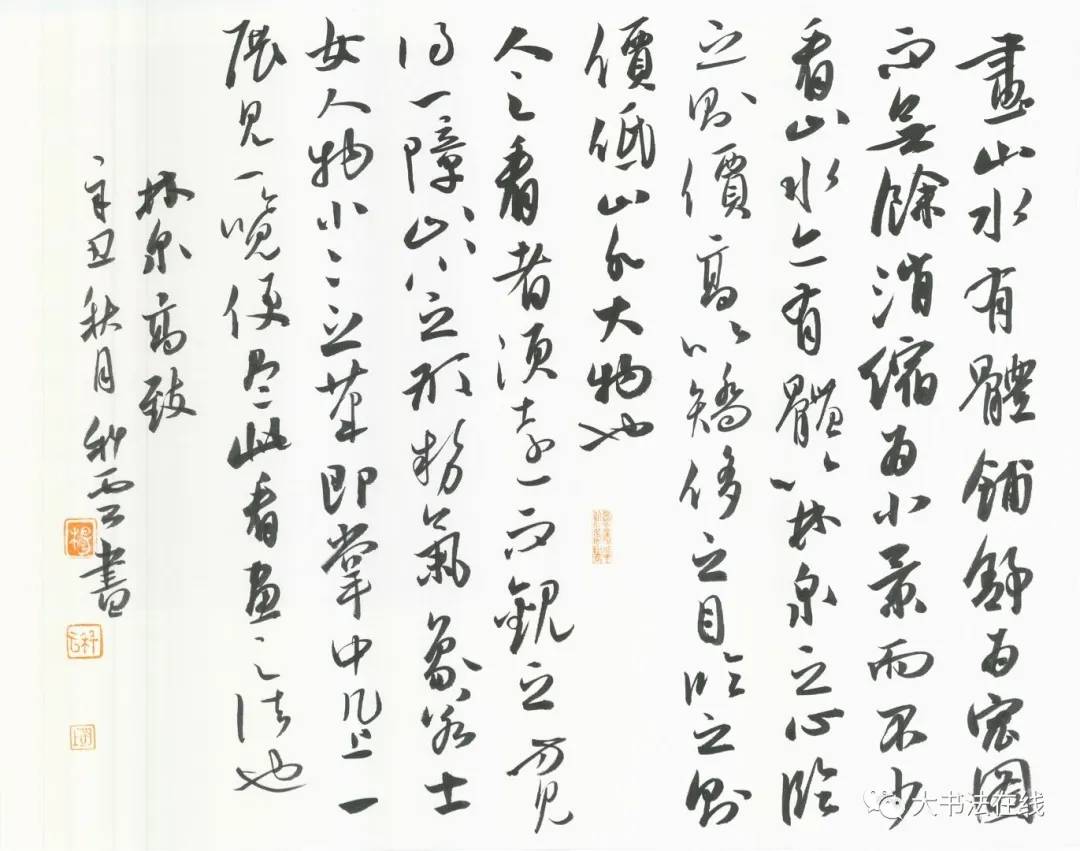 畫山水有體鋪舒為宏圖
而無餘消縮為小景而不少
看山水亦有體以林泉之心臨
之則價高以矯侈之目臨之則
價低山水大物也
人之看者須遠而觀之方見
得一障山川之形勢氣象若士
女人物小小之筆即掌中几上一
展見一覽便盡此看畫之法也
林泉高致
辛丑秋月書
大书法在线